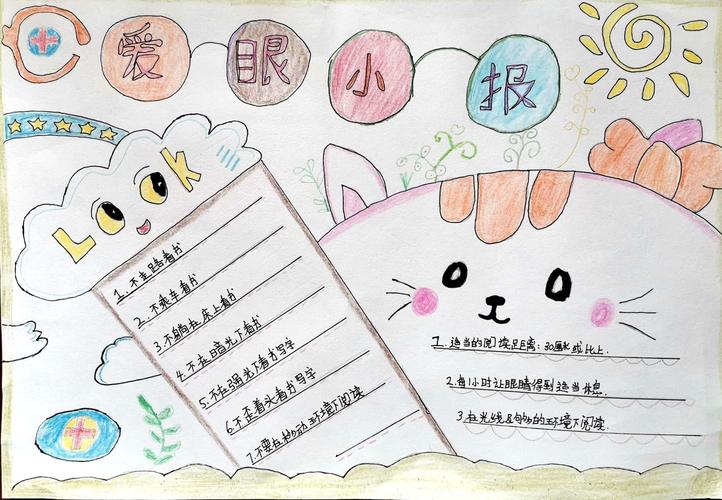 爱眼小报
LOOK
1.不走路看书
2.不乘车看书
3.不躺在床上看书
4.不在暗光下看书
5.不在强光下看书写字
6.不歪着头看书写字
7.不要在移动环境下阅读
1.适当的阅读距离：30厘米或比上.
2.每1小时让眼睛得到适当休息.
3.在光线的环境下阅读.